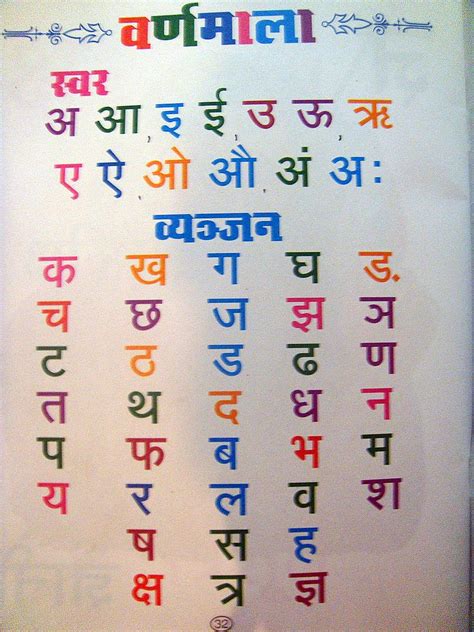 वर्णमाला
स्वर
अ आ, इ ई, उ ऊ, ऋ
ए ऐ, ओ औ, अं अः
व्यञ्जन
क ख ग घ ड़
च छ ज झ ञ
ट ठ ड ढ ण
त थ द ध न
प फ ब भ म
य र ल व श
ष स ह
क्ष त्र ज्ञ
32